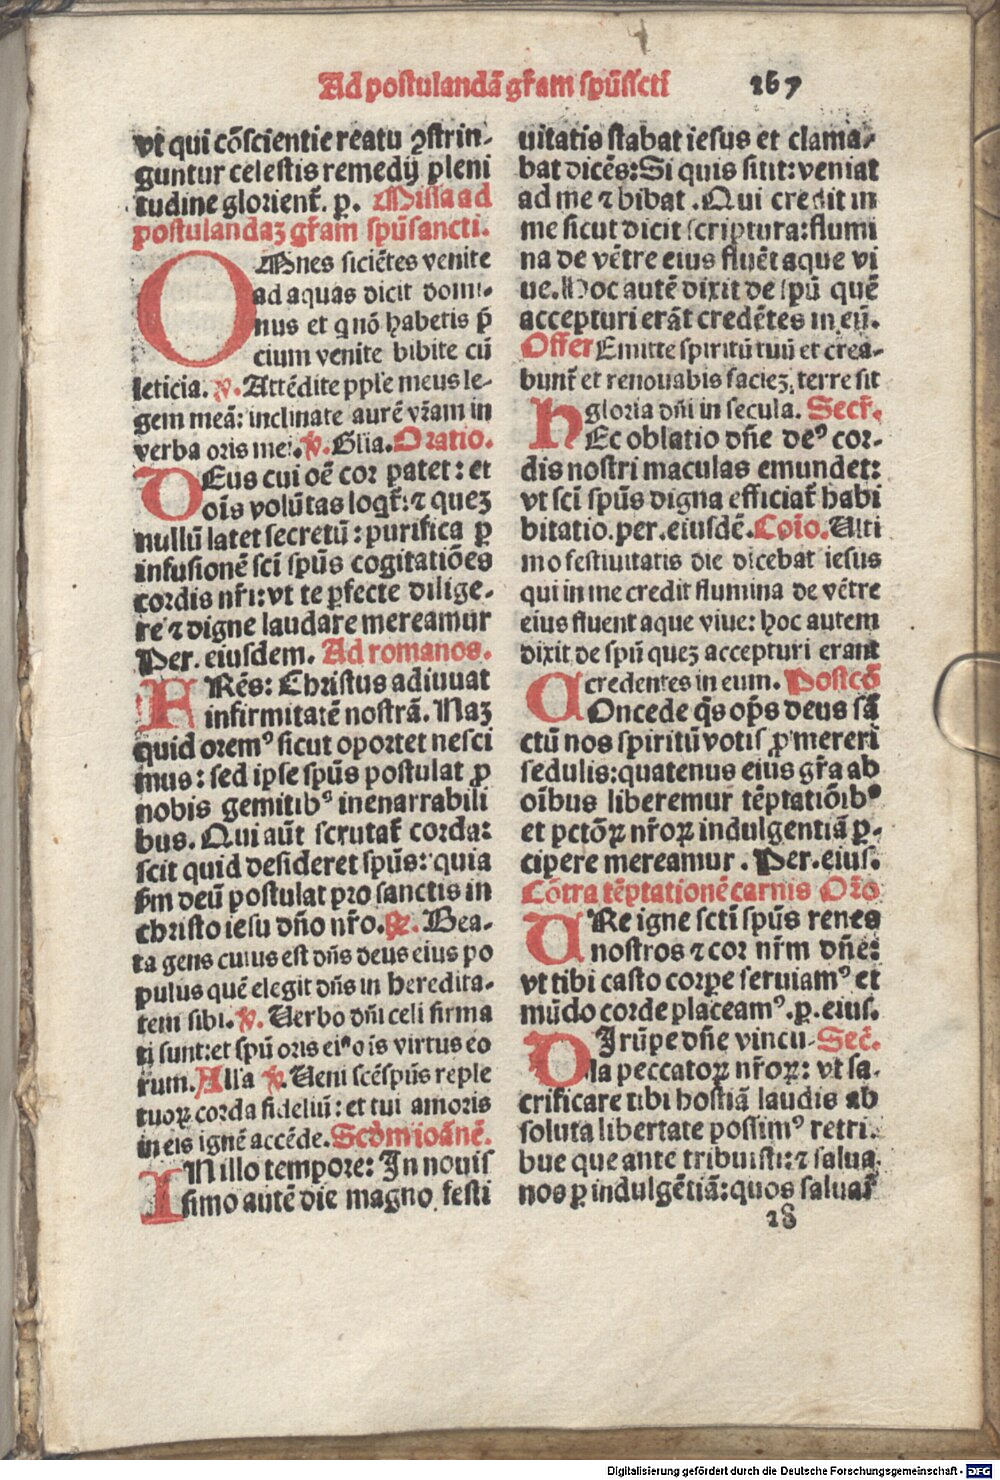 Ad postulandā gr̄am spūsscti 167
vt qui cōscientie reatu ꝯstrin-
guntur celestis remedij pleni
tudine glorient̄. p. Missa ad
postulandaꝫ gr̄am spūsancti.
OMnes siciētes venite
ad aquas dicit domi-
nus et q nō habetis p̄
cium venite bibite cū
leticia. ℣. Attēdite pple meus le-
gem meā: inclinate aurē vr̄am in
verba oris mei. ℣. Glia. Oratio.
DEus cui oē cor patet: et
oīs volūtas loqt̄: ⁊ queꝫ
nullū latet secretū: purifica ꝑ
infusionē sci spūs cogitatiōes
cordis nr̄i: vt te ꝑfecte dilige-
re ⁊ digne laudare mereamur
Per. eiusdem. Ad romanos.
FRēs: Christus adiuuat
infirmitatē nostrā. Naꝫ
quid oremꝰ sicut oportet nesci
mus: sed ipse spūs postulat ꝓ
nobis gemitibꝰ inenarrabili
bus. Qui aūt scrutat̄ corda:
scit quid desideret spūs: quia
ẜm deū postulat pro sanctis in
christo iesu dño nr̄o. ℟. Bea-
ta gens cuius est dñs deus eius po
pulus quē elegit dñs in heredita-
tem sibi. ℣. Uerbo dñi celi firma
ti sunt: et spū oris eiꝰ oīs virtus eo
rum. Alla ℣. Ueni scē spūs reple
tuoꝝ corda fideliū: et tui amoris
in eis ignē accēde. Scdm ioānē.
IN illo tempore: In nouis
simo autē die magno festi
uitatis stabat iesus et clama-
bat dicēs: Si quis sitit: veniat
ad me ⁊ bibat. Qui credit in
me sicut dicit scriptura: flumi
na de vētre eius fluēt aque vi
ue. Hoc autē dixit de spū quē
accepturi erāt credētes in eū.
Offer Emitte spiritū tuū et crea-
bunt̄ et renouabis facieꝫ terre sit
gloria dñi in secula. Secr̄.
HEc oblatio dñe deꝰ cor-
dis nostri maculas emundet:
vt sci spūs digna efficiat̄ habi
bitatio. per. eiusdē. Cōio. Ulti
mo festiuitatis die dicebat iesus
qui in me credit flumina de vētre
eius fluent aque viue: hoc autem
dixit de spū queꝫ accepturi erant
credentes in eum. Postcō
COncede q̄s op̄s deus sā
ctū nos spiritū votis ꝓmereri
sedulis: quatenus eius gr̄a ab
oībus liberemur tēptatiōibꝰ
et pctōꝝ nr̄oꝝ indulgentiā ꝑ-
cipere mereamur. Per. eius.
Cōtra tēptationē carnis Or̄o
URe igne scti spūs renes
nostros ⁊ cor nr̄m dñe:
vt tibi casto corpe seruiamꝰ et
mūdo corde placeamꝰ. p. eius.
DIrūpe dñe vincu- Sec̄.
la peccatoꝝ nr̄oꝝ: vt sa-
crificare tibi hostiā laudis ab
soluta libertate possimꝰ retri-
bue que ante tribuisti: ⁊ salua
nos ꝑ indulgētiā: quos saluar̄
18
Digitalisierung gefördert durch die Deutsche Forschungsgemeinschaft - DFG